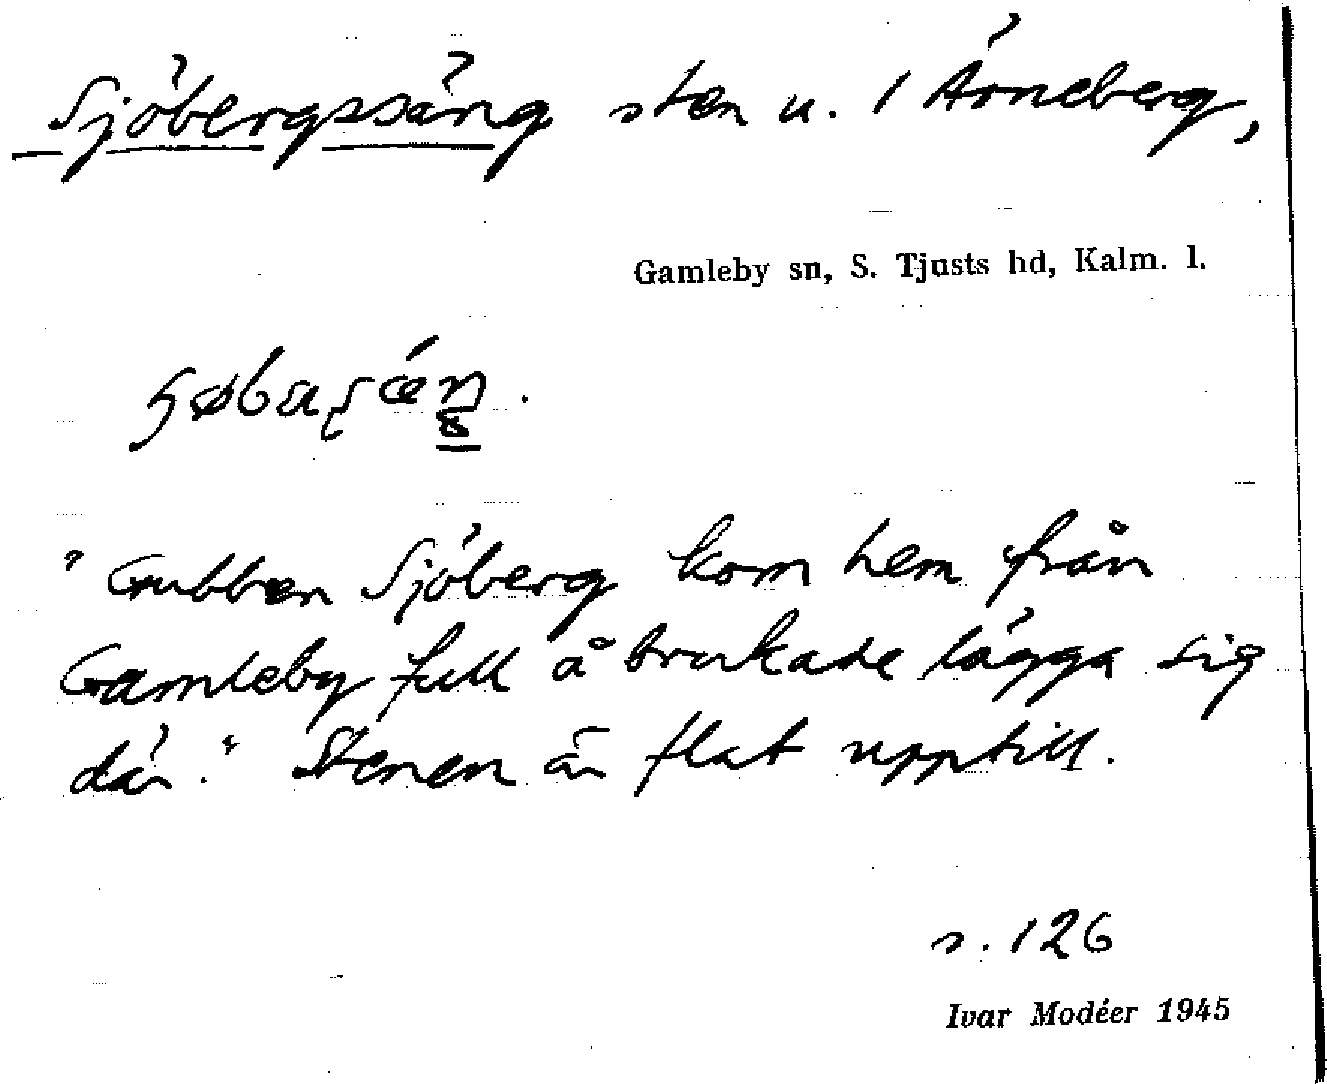 Sjöbergssäng sten u. 1 Ärneberg,
Gamleby sn, S. Tjusts hd, Kalm. l.
"Gubben Sjöberg kom hem från
Gamleby full å brukade lägga sig
där." Stenen är flat upptill.
s. 126
Ivar Modéer 1945